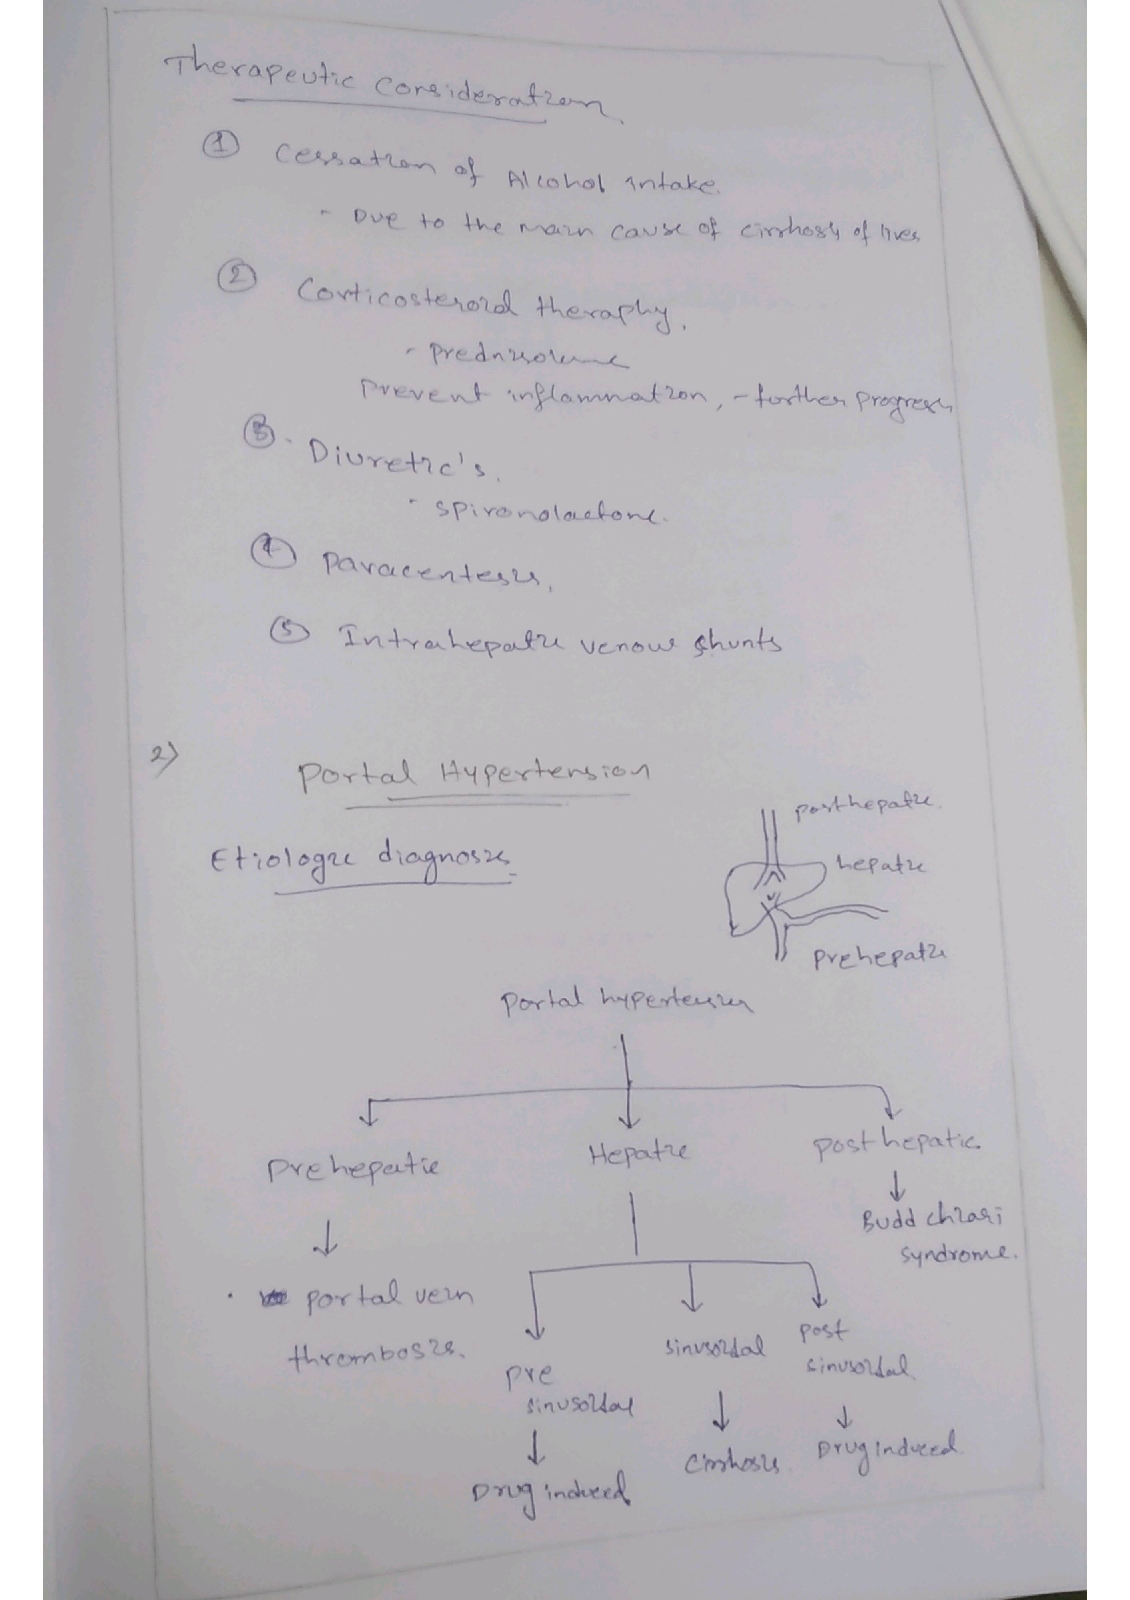 Therapeutic Consideration
① Cessation of Alcohol intake.
- Due to the main cause of cirrhosis of liver
② Corticosteroid theraphy.
- Prednisolone
Prevent inflammation, - further progress
③. Diuretic's.
- spironolactone.
④ Paracentesis.
⑤ Intrahepatic venous shunts
2)
Portal Hypertension
Etiologic diagnosis
posthepatic.
hepatic
Prehepatic
Portal hypertension
Prehepatic
Hepatic
post hepatic.
Budd chiari
syndrome.
• portal vein
thrombosis.
pre
sinusoidal
sinusoidal
post
sinusoidal
Drug induced
Cirrhosis.
Drug induced